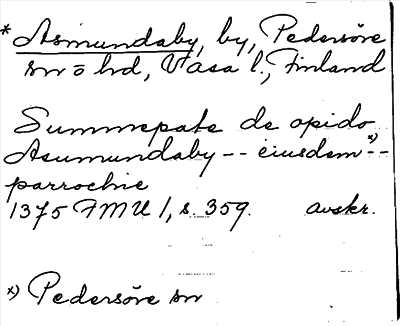 * Asmundaby, by, Pedersöre
sn o hd, Vasa l., Finland
Summepate de opido
Asumundaby -- eiusdem x) --
parrochie
1375 FMU 1, s. 359. avskr.
x) Pedersöre sn